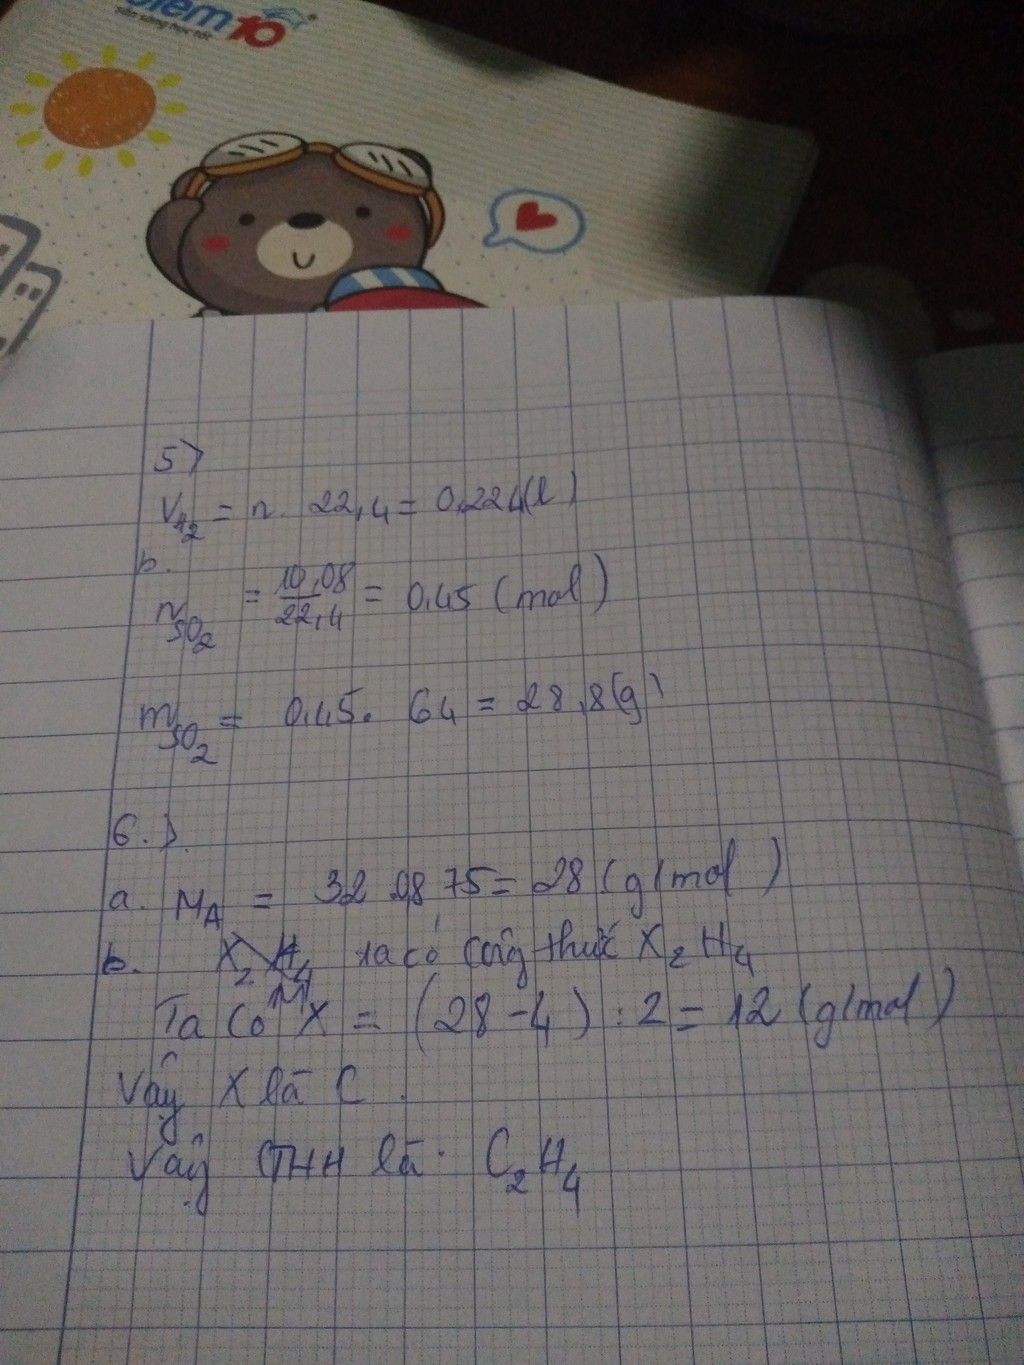 điểm 10
5>
V_H2 = n. 22,4 = 0,224(l)
b.
n_SO2 = 10,08/22,4 = 0,45 (mol)
m_SO2 = 0,45. 64 = 28,8(g)
6.>
a. M_A = 32 0,8 75 = 28 (g/mol)
b. X2 H4 ta có công thức X2H4
Ta có M X = (28-4) : 2 = 12 (g/mol)
Vậy X là C.
Vậy CTHH là: C2H4